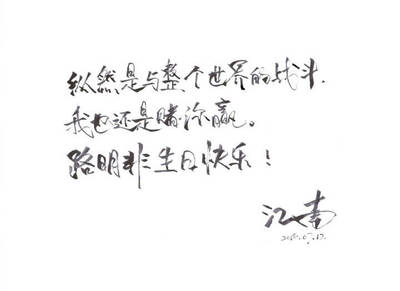 纵然是与整个世界的战斗，
我也还是赌你赢。
路明非生日快乐！
江南